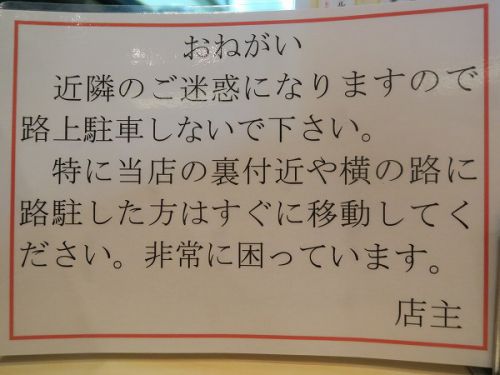 おねがい
近隣のご迷惑になりますので
路上駐車しないで下さい。
特に当店の裏付近や横の路に
路駐した方はすぐに移動してく
ださい。非常に困っています。
店主